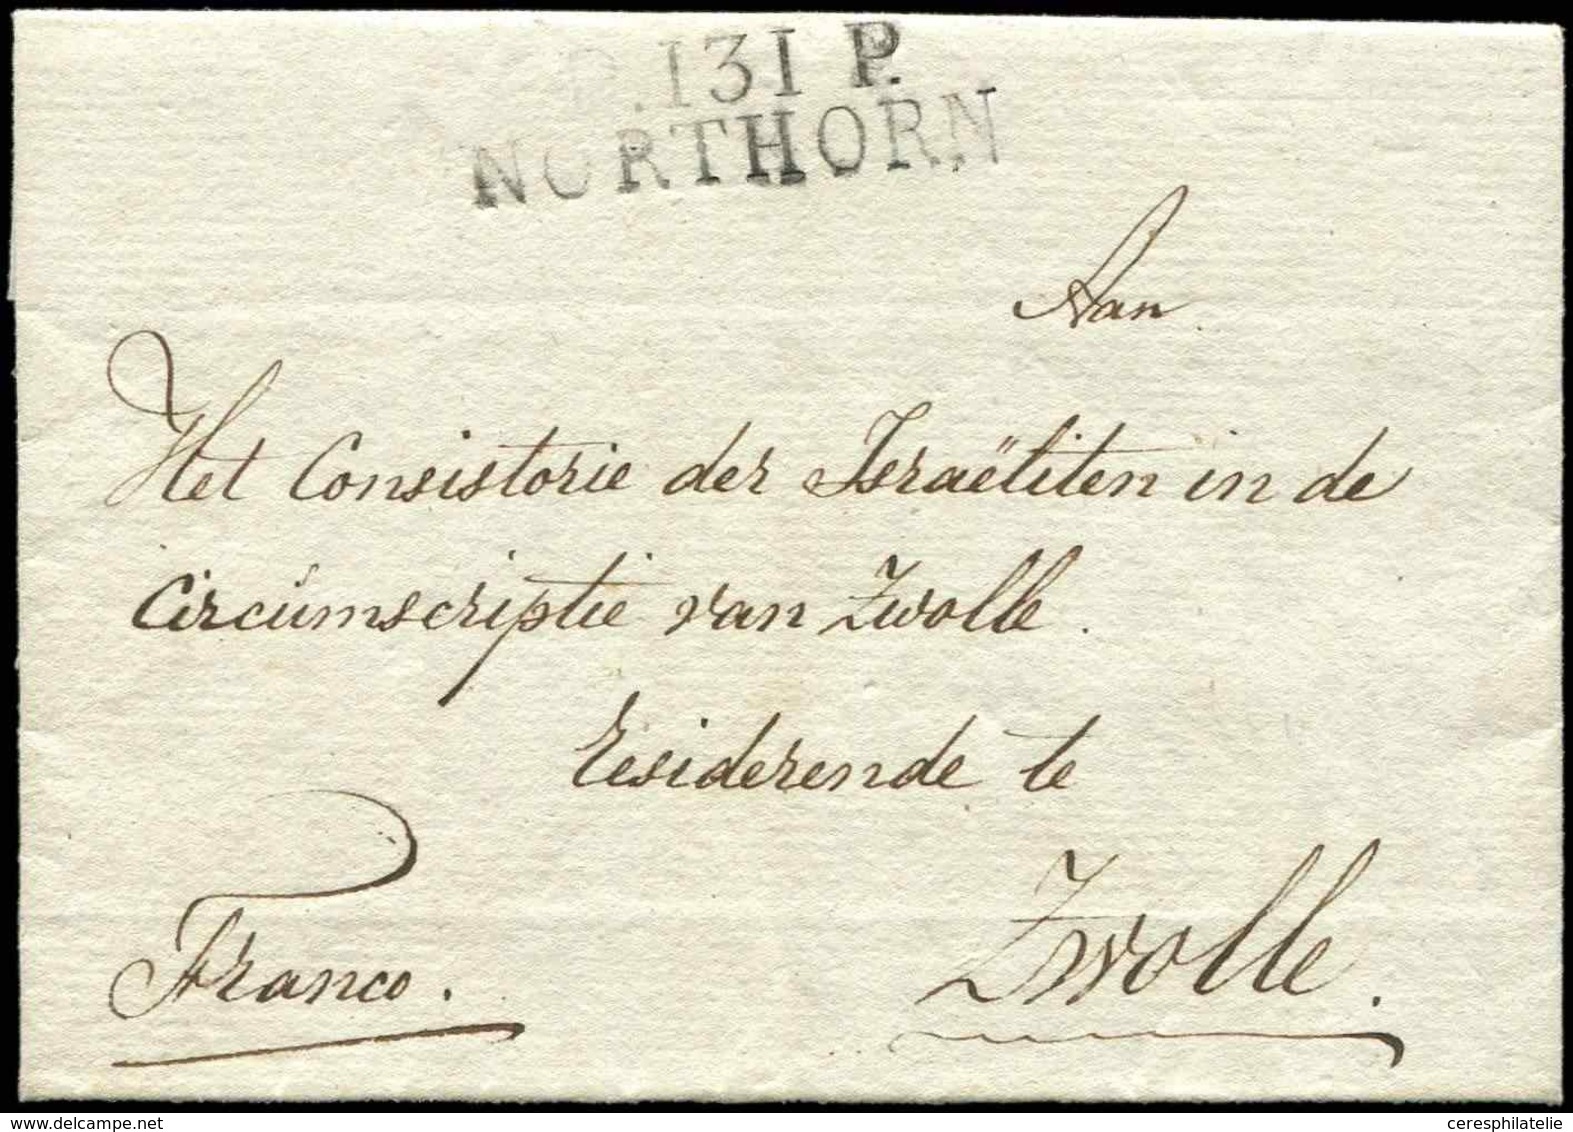 P.131 P.
NORTHORN
Aan
Het Consistorie der Israëliten in de
Circúmscriptie van Zwolle.
Residerende te
Zwolle.
Franco.
delcampe.net
ceresphilatelie